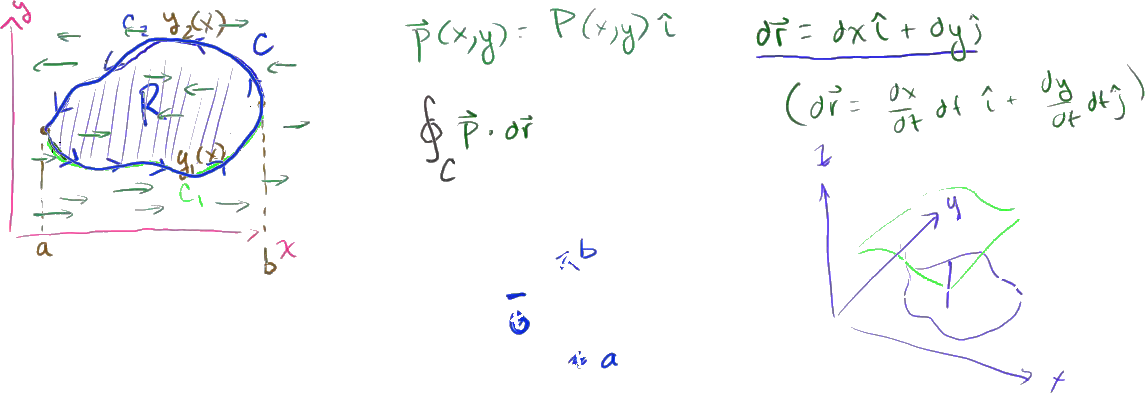 y
C₂ y₂(x) C
R
y₁(x)
C₁
a b x
p⃗(x,y) = P(x,y) î
∮_C p⃗ · dr⃗
b
a
dr⃗ = dx î + dy ĵ
(dr⃗ = dx/dt dt î + dy/dt dt ĵ)
z
y
x